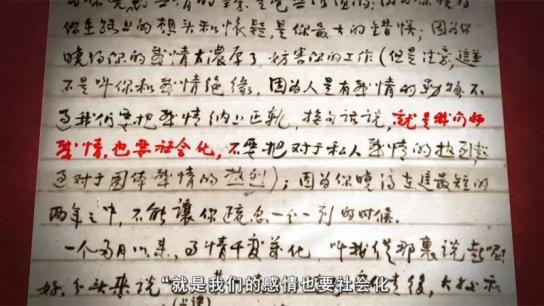 你在纸上的想头和怀疑,是你最大的错误;因为你
晓得你的感情太浓厚了,妨害你的工作(但是注意,这并
不是叫你和感情绝缘,因为人是有感情的动物,不
过我们要把感情纳上正轨,换句话说,就是我们的
感情,也要社会化,不要把对于私人感情的热烈超
过对于团体感情的热烈);因为你晓得在这最短的
两年之中,不能讓你疏忽一分一刻的时候。
一个多月以来,事情千变万化,叫我从那裏说起呢
好,分头来说
“就是我们的感情也要社会化